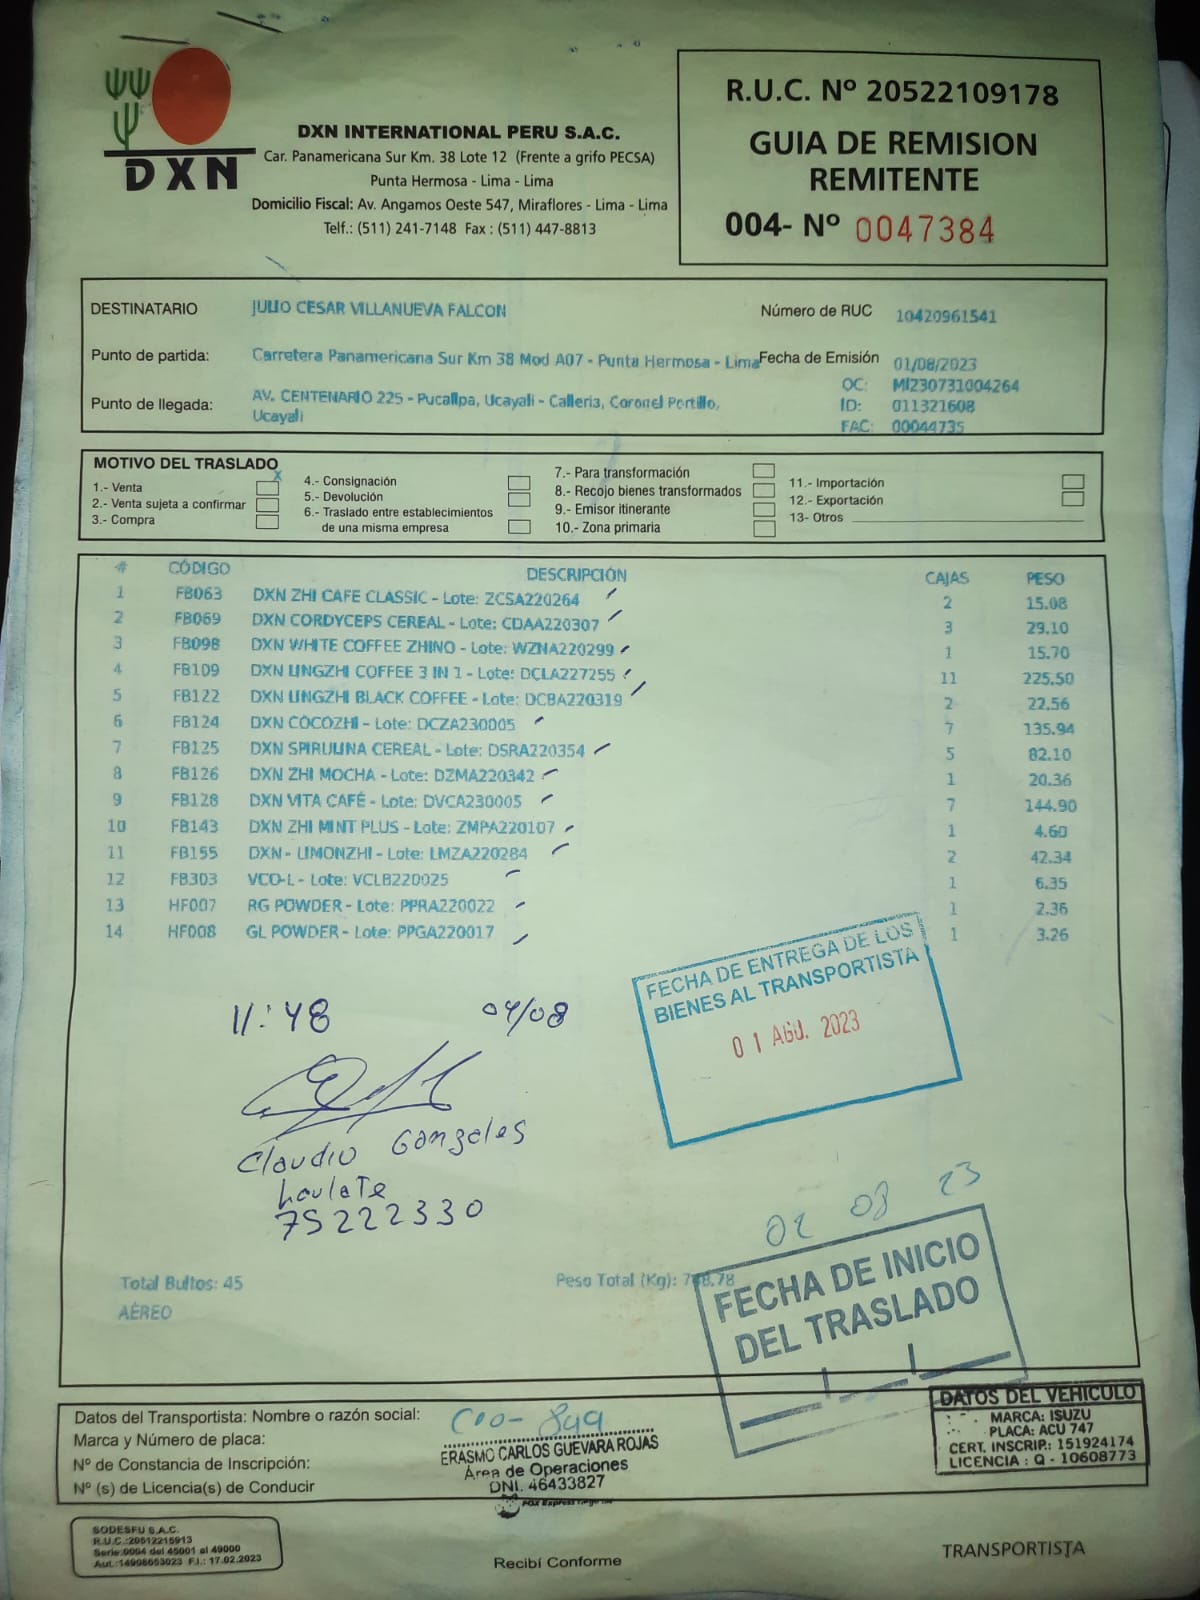 DXN
DXN INTERNATIONAL PERU S.A.C.
Car. Panamericana Sur Km. 38 Lote 12 (Frente a grifo PECSA)
Punta Hermosa - Lima - Lima
Domicilio Fiscal: Av. Angamos Oeste 547, Miraflores - Lima - Lima
Telf.: (511) 241-7148 Fax : (511) 447-8813
R.U.C. Nº 20522109178
GUIA DE REMISION
REMITENTE
004- Nº 0047384
DESTINATARIO JULIO CESAR VILLANUEVA FALCON Número de RUC 10420961541
Punto de partida: Carretera Panamericana Sur Km 38 Mod A07 - Punta Hermosa - Lima Fecha de Emisión 01/08/2023
OC: MI230731004264
Punto de llegada: AV. CENTENARIO 225 - Pucallpa, Ucayali - Calleria, Coronel Portillo, ID: 011321608
Ucayali FAC: 00044735
MOTIVO DEL TRASLADO
1.- Venta X
2.- Venta sujeta a confirmar
3.- Compra
4.- Consignación
5.- Devolución
6.- Traslado entre establecimientos
de una misma empresa
7.- Para transformación
8.- Recojo bienes transformados
9.- Emisor itinerante
10.- Zona primaria
11.- Importación
12.- Exportación
13.- Otros
# CÓDIGO DESCRIPCIÓN CAJAS PESO
1 FB063 DXN ZHI CAFE CLASSIC - Lote: ZCSA220264 2 15.08
2 FB069 DXN CORDYCEPS CEREAL - Lote: CDAA220307 3 29.10
3 FB098 DXN WHITE COFFEE ZHINO - Lote: WZNA220299 1 15.70
4 FB109 DXN LINGZHI COFFEE 3 IN 1 - Lote: DCLA227255 11 225.50
5 FB122 DXN LINGZHI BLACK COFFEE - Lote: DCBA220319 2 22.56
6 FB124 DXN COCOZHI - Lote: DCZA230005 7 135.94
7 FB125 DXN SPIRULINA CEREAL - Lote: DSRA220354 5 82.10
8 FB126 DXN ZHI MOCHA - Lote: DZMA220342 1 20.36
9 FB128 DXN VITA CAFÉ - Lote: DVCA230005 7 144.90
10 FB143 DXN ZHI MINT PLUS - Lote: ZMPA220107 1 4.60
11 FB155 DXN - LIMONZHI - Lote: LMZA220284 2 42.34
12 FB303 VCO-L - Lote: VCLB220025 1 6.35
13 HF007 RG POWDER - Lote: PPRA220022 1 2.36
14 HF008 GL POWDER - Lote: PPGA220017 1 3.26
FECHA DE ENTREGA DE LOS
BIENES AL TRANSPORTISTA
01 AGO. 2023
11:48 04/08
Claudio Gonzales
Loulate
75222330
02 08 23
FECHA DE INICIO
DEL TRASLADO
Total Bultos: 45 Peso Total (Kg):
AÉREO
Datos del Transportista: Nombre o razón social:
Marca y Número de placa:
Nº de Constancia de Inscripción:
Nº (s) de Licencia(s) de Conducir
C00-849
ERASMO CARLOS GUEVARA ROJAS
Área de Operaciones
DNI. 46433827
DATOS DEL VEHICULO
MARCA: ISUZU
PLACA: ACU 747
CERT. INSCRIP.: 151924174
LICENCIA : Q - 10608773
SODESFU S.A.C.
R.U.C.:20512215913
Serie:0004 del 45001 al 49000
Aut.:14998653023 F.I.: 17.02.2023
Recibí Conforme
TRANSPORTISTA